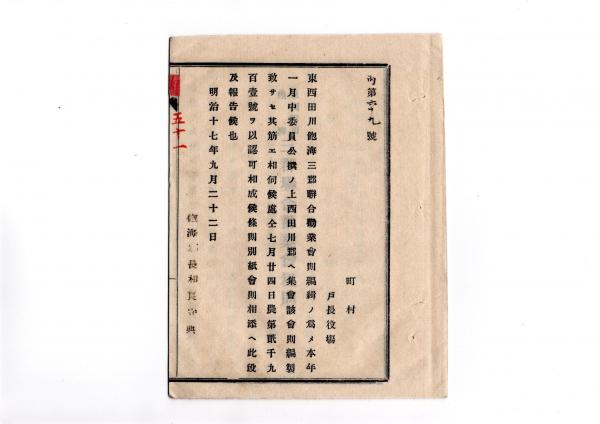 丙第六十九號
町村
戸長役場
東西田川飽海三郡聯合勸業會則編緝ノ爲メ本年
一月中委員公撰ノ上西田川郡ヘ集會該會則編製
致サセ其筋エ相伺候處仝七月廿四日農第貳千九
百壹號ヲ以認可相成候條則別紙會則相添ヘ此段
及報告候也
明治十七年九月二十二日
飽海郡長相良守典
五十一